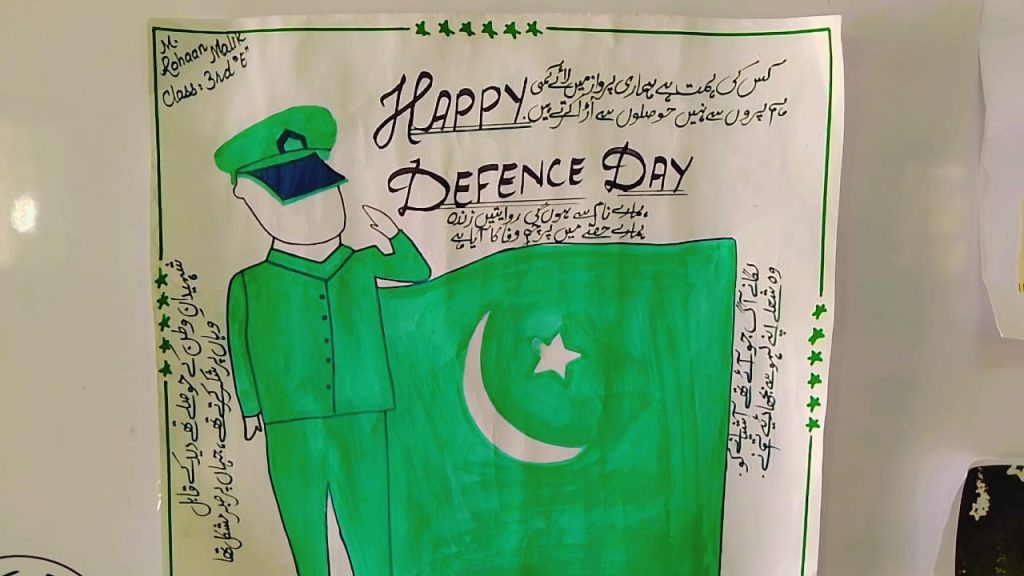 M.
Rohaan Malik
Class: 3rd "E"
HAPPY
DEFENCE DAY
کس کی ہمت ہے ہماری پرواز میں لائے کمی
ہم پروں سے نہیں حوصلوں سے اڑا کرتے ہیں۔
ہمارے نام سے ہوں گی روایتیں زندہ
ہمارے حصے میں پرچم وفا کا آیا ہے
شہیدانِ وطن کے حوصلے تھے دید کے قابل
وہاں پر شکر کرتے تھے، جہاں پر صبر مشکل تھا
لگانے آگ جو آئے تھے آشیانے کو
وہ شعلے اپنے لہو سے بجھا دیے تم نے